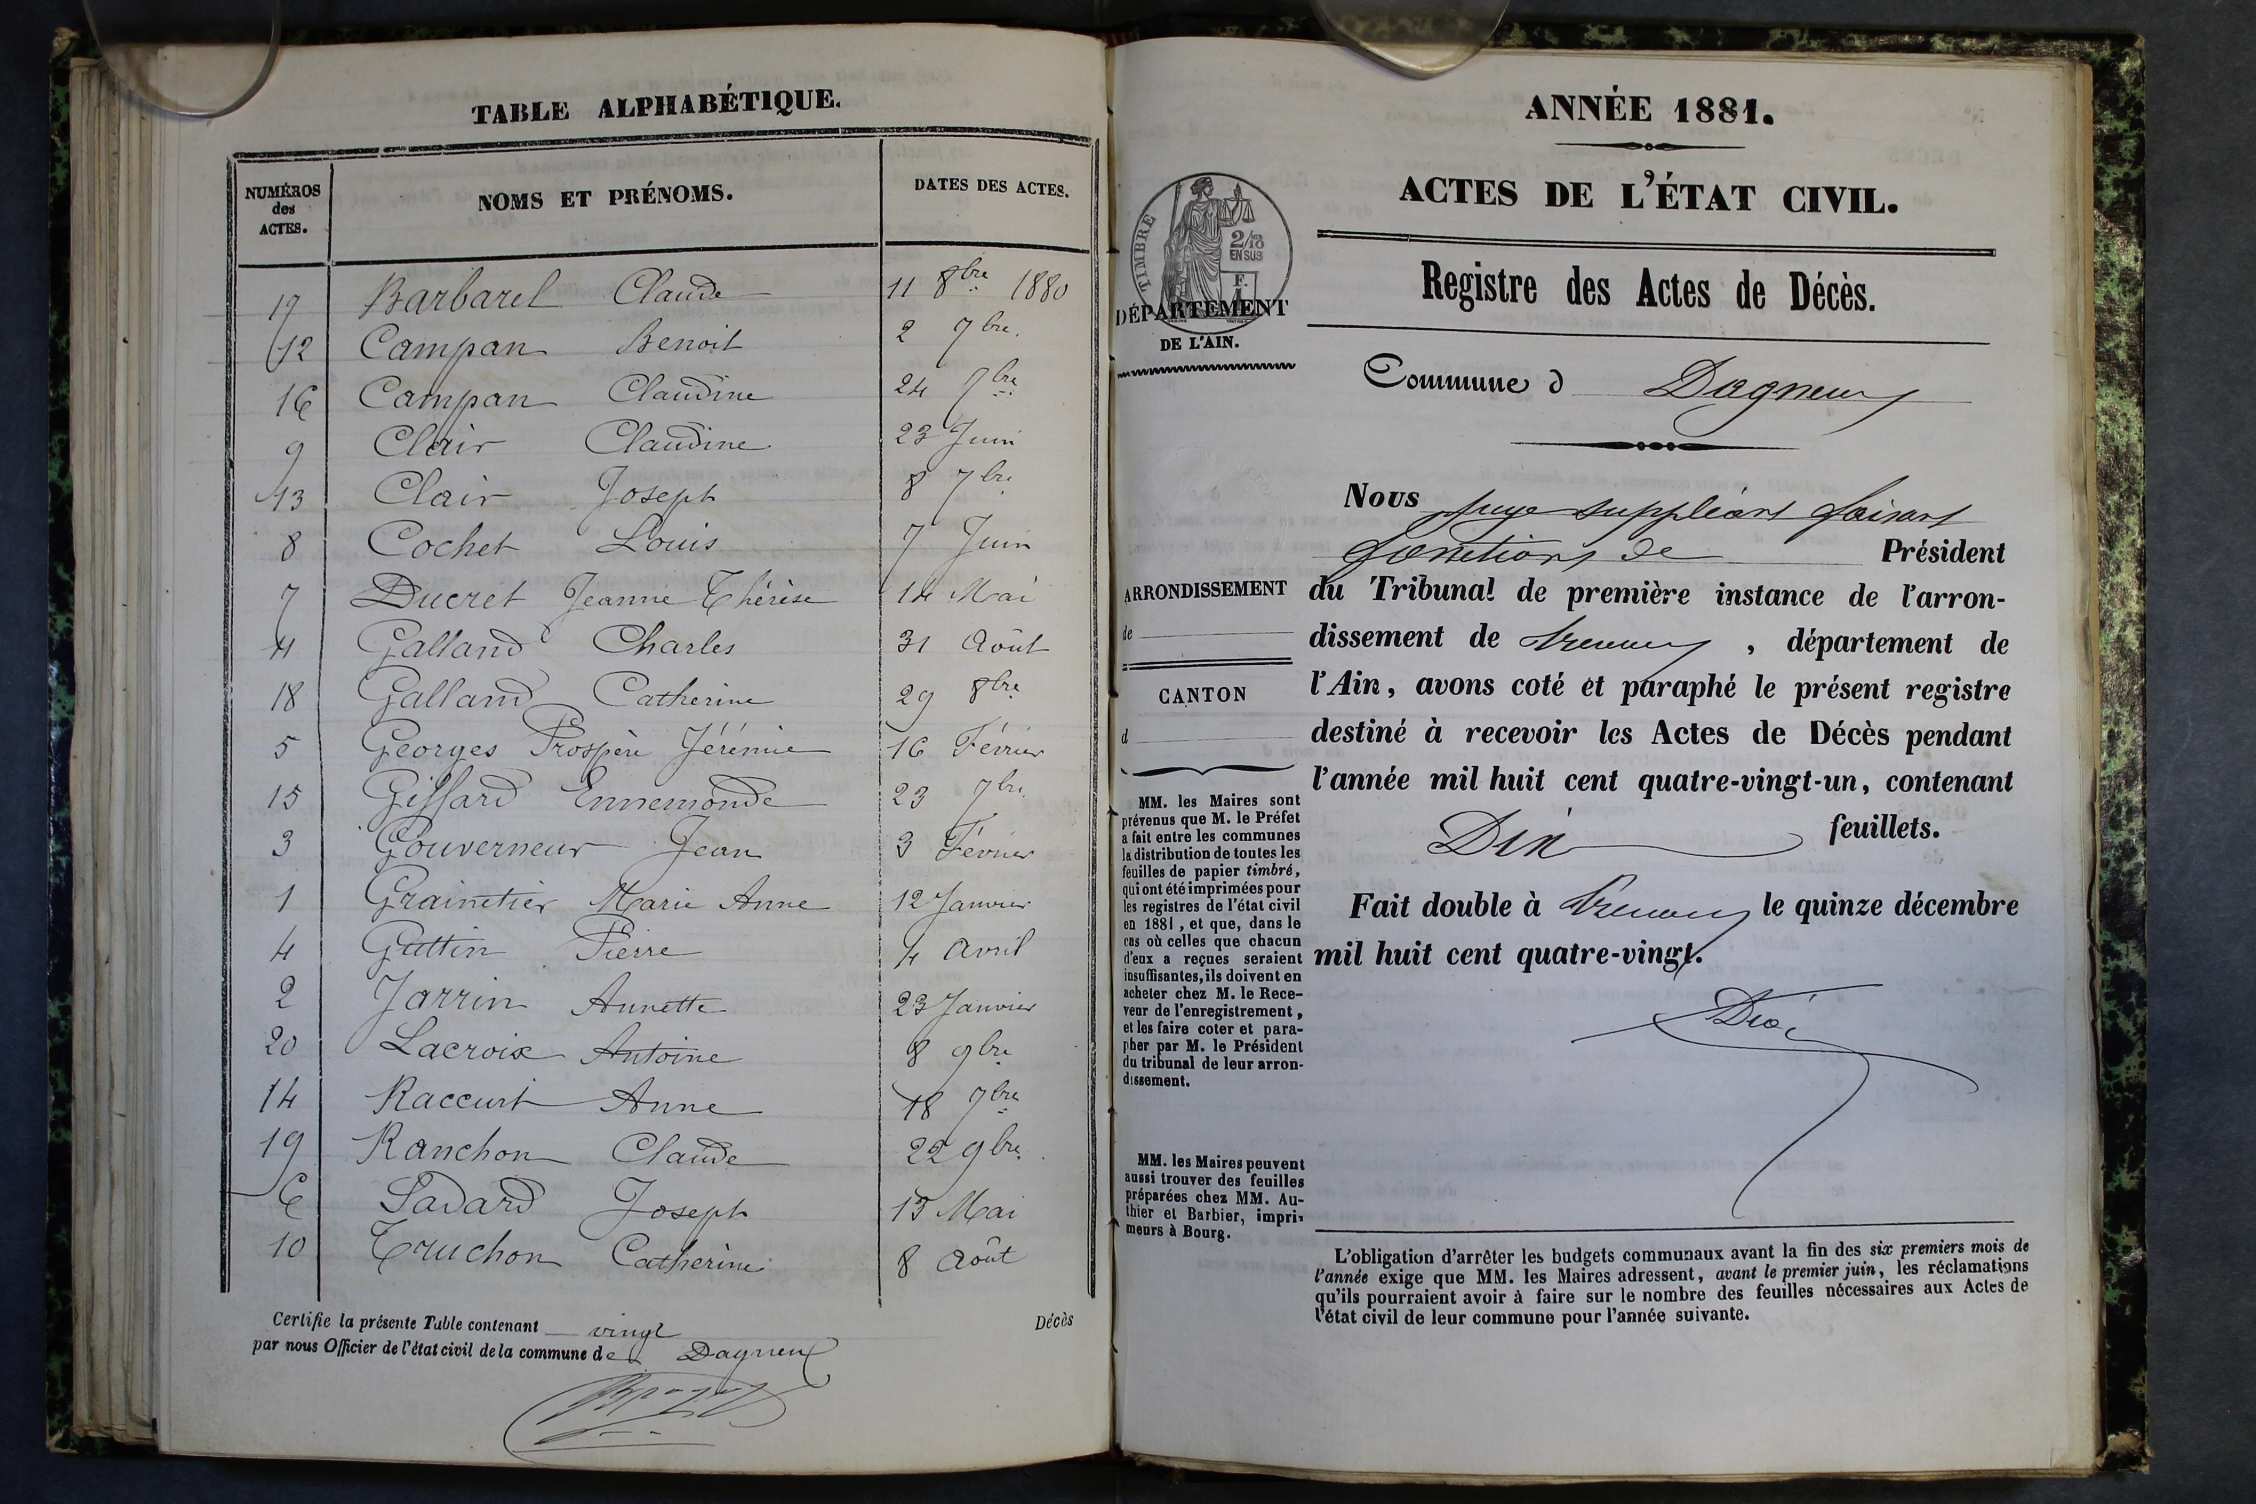 TABLE ALPHABÉTIQUE.
NUMÉROS des ACTES. NOMS ET PRÉNOMS. DATES DES ACTES.
17 Barbarel Claude 11 8bre 1880
12 Campan Benoit 2 7bre
16 Campan Claudine 24 7bre
9 Clair Claudine 23 Juin
13 Clair Joseph 8 7bre
8 Cochet Louis 7 Juin
7 Ducret Jeanne Thérèse 14 Mai
11 Galland Charles 31 Août
18 Galland Catherine 29 8bre
5 Georges Prospère Jérémie 16 Février
15 Giffard Ennemonde 23 7bre
3 Gouverneur Jean 3 Février
1 Grainetier Marie Anne 12 Janvier
4 Guttin Pierre 4 Avril
2 Jarrin Annette 23 Janvier
20 Lacroix Antoine 8 9bre
14 Raccurt Anne 18 7bre
19 Ranchon Claude 22 9bre
6 Sadard Joseph 13 Mai
10 Truchon Catherine 8 Août
Certifie la présente Table contenant vingt Décès
par nous Officier de l'état civil de la commune de Dagneux
ANNÉE 1881.
ACTES DE L'ÉTAT CIVIL.
TIMBRE
2/10
EN SUS
F.
DÉPARTEMENT
DE L'AIN.
Registre des Actes de Décès.
Commune d Dagneux
Nous juge suppléant faisant
fonctions de Président
du Tribunal de première instance de l'arron-
dissement de Trévoux, département de
l'Ain, avons coté et paraphé le présent registre
destiné à recevoir les Actes de Décès pendant
l'année mil huit cent quatre-vingt-un, contenant
Dix feuillets.
Fait double à Trévoux le quinze décembre
mil huit cent quatre-vingt.
ARRONDISSEMENT
de
CANTON
d
MM. les Maires sont
prévenus que M. le Préfet
a fait entre les communes
la distribution de toutes les
feuilles de papier timbré,
qui ont été imprimées pour
les registres de l'état civil
en 1881, et que, dans le
cas où celles que chacun
d'eux a reçues seraient
insuffisantes, ils doivent en
acheter chez M. le Rece-
veur de l'enregistrement,
et les faire coter et para-
pher par M. le Président
du tribunal de leur arron-
dissement.
MM. les Maires peuvent
aussi trouver des feuilles
préparées chez MM. Au-
thier et Barbier, impri-
meurs à Bourg.
L'obligation d'arrêter les budgets communaux avant la fin des six premiers mois de
l'année exige que MM. les Maires adressent, avant le premier juin, les réclamations
qu'ils pourraient avoir à faire sur le nombre des feuilles nécessaires aux Actes de
l'état civil de leur commune pour l'année suivante.